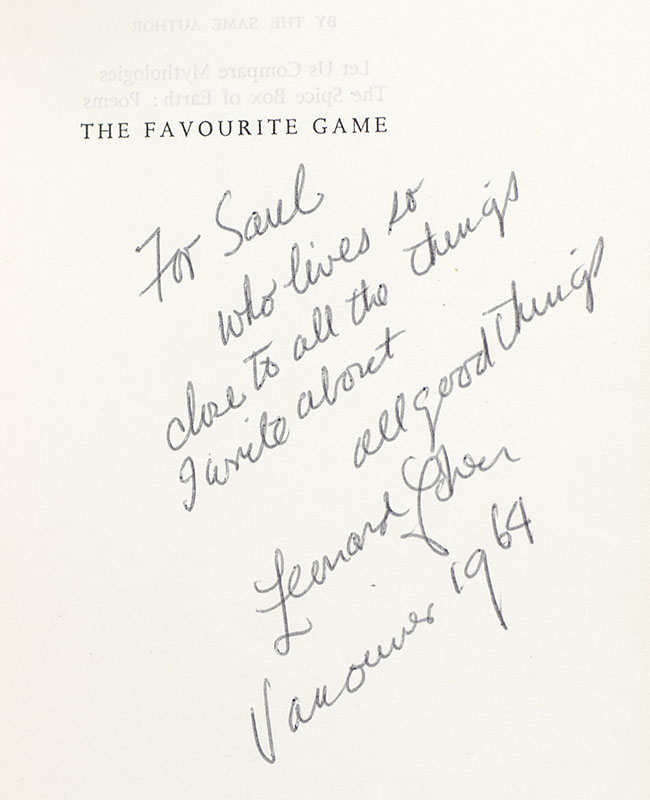 BY THE SAME AUTHOR
Let Us Compare Mythologies
The Spice Box of Earth: Poems
THE FAVOURITE GAME
For Saul
who lives so
close to all the things
I write about
all good things
Leonard Cohen
Vancouver 1964